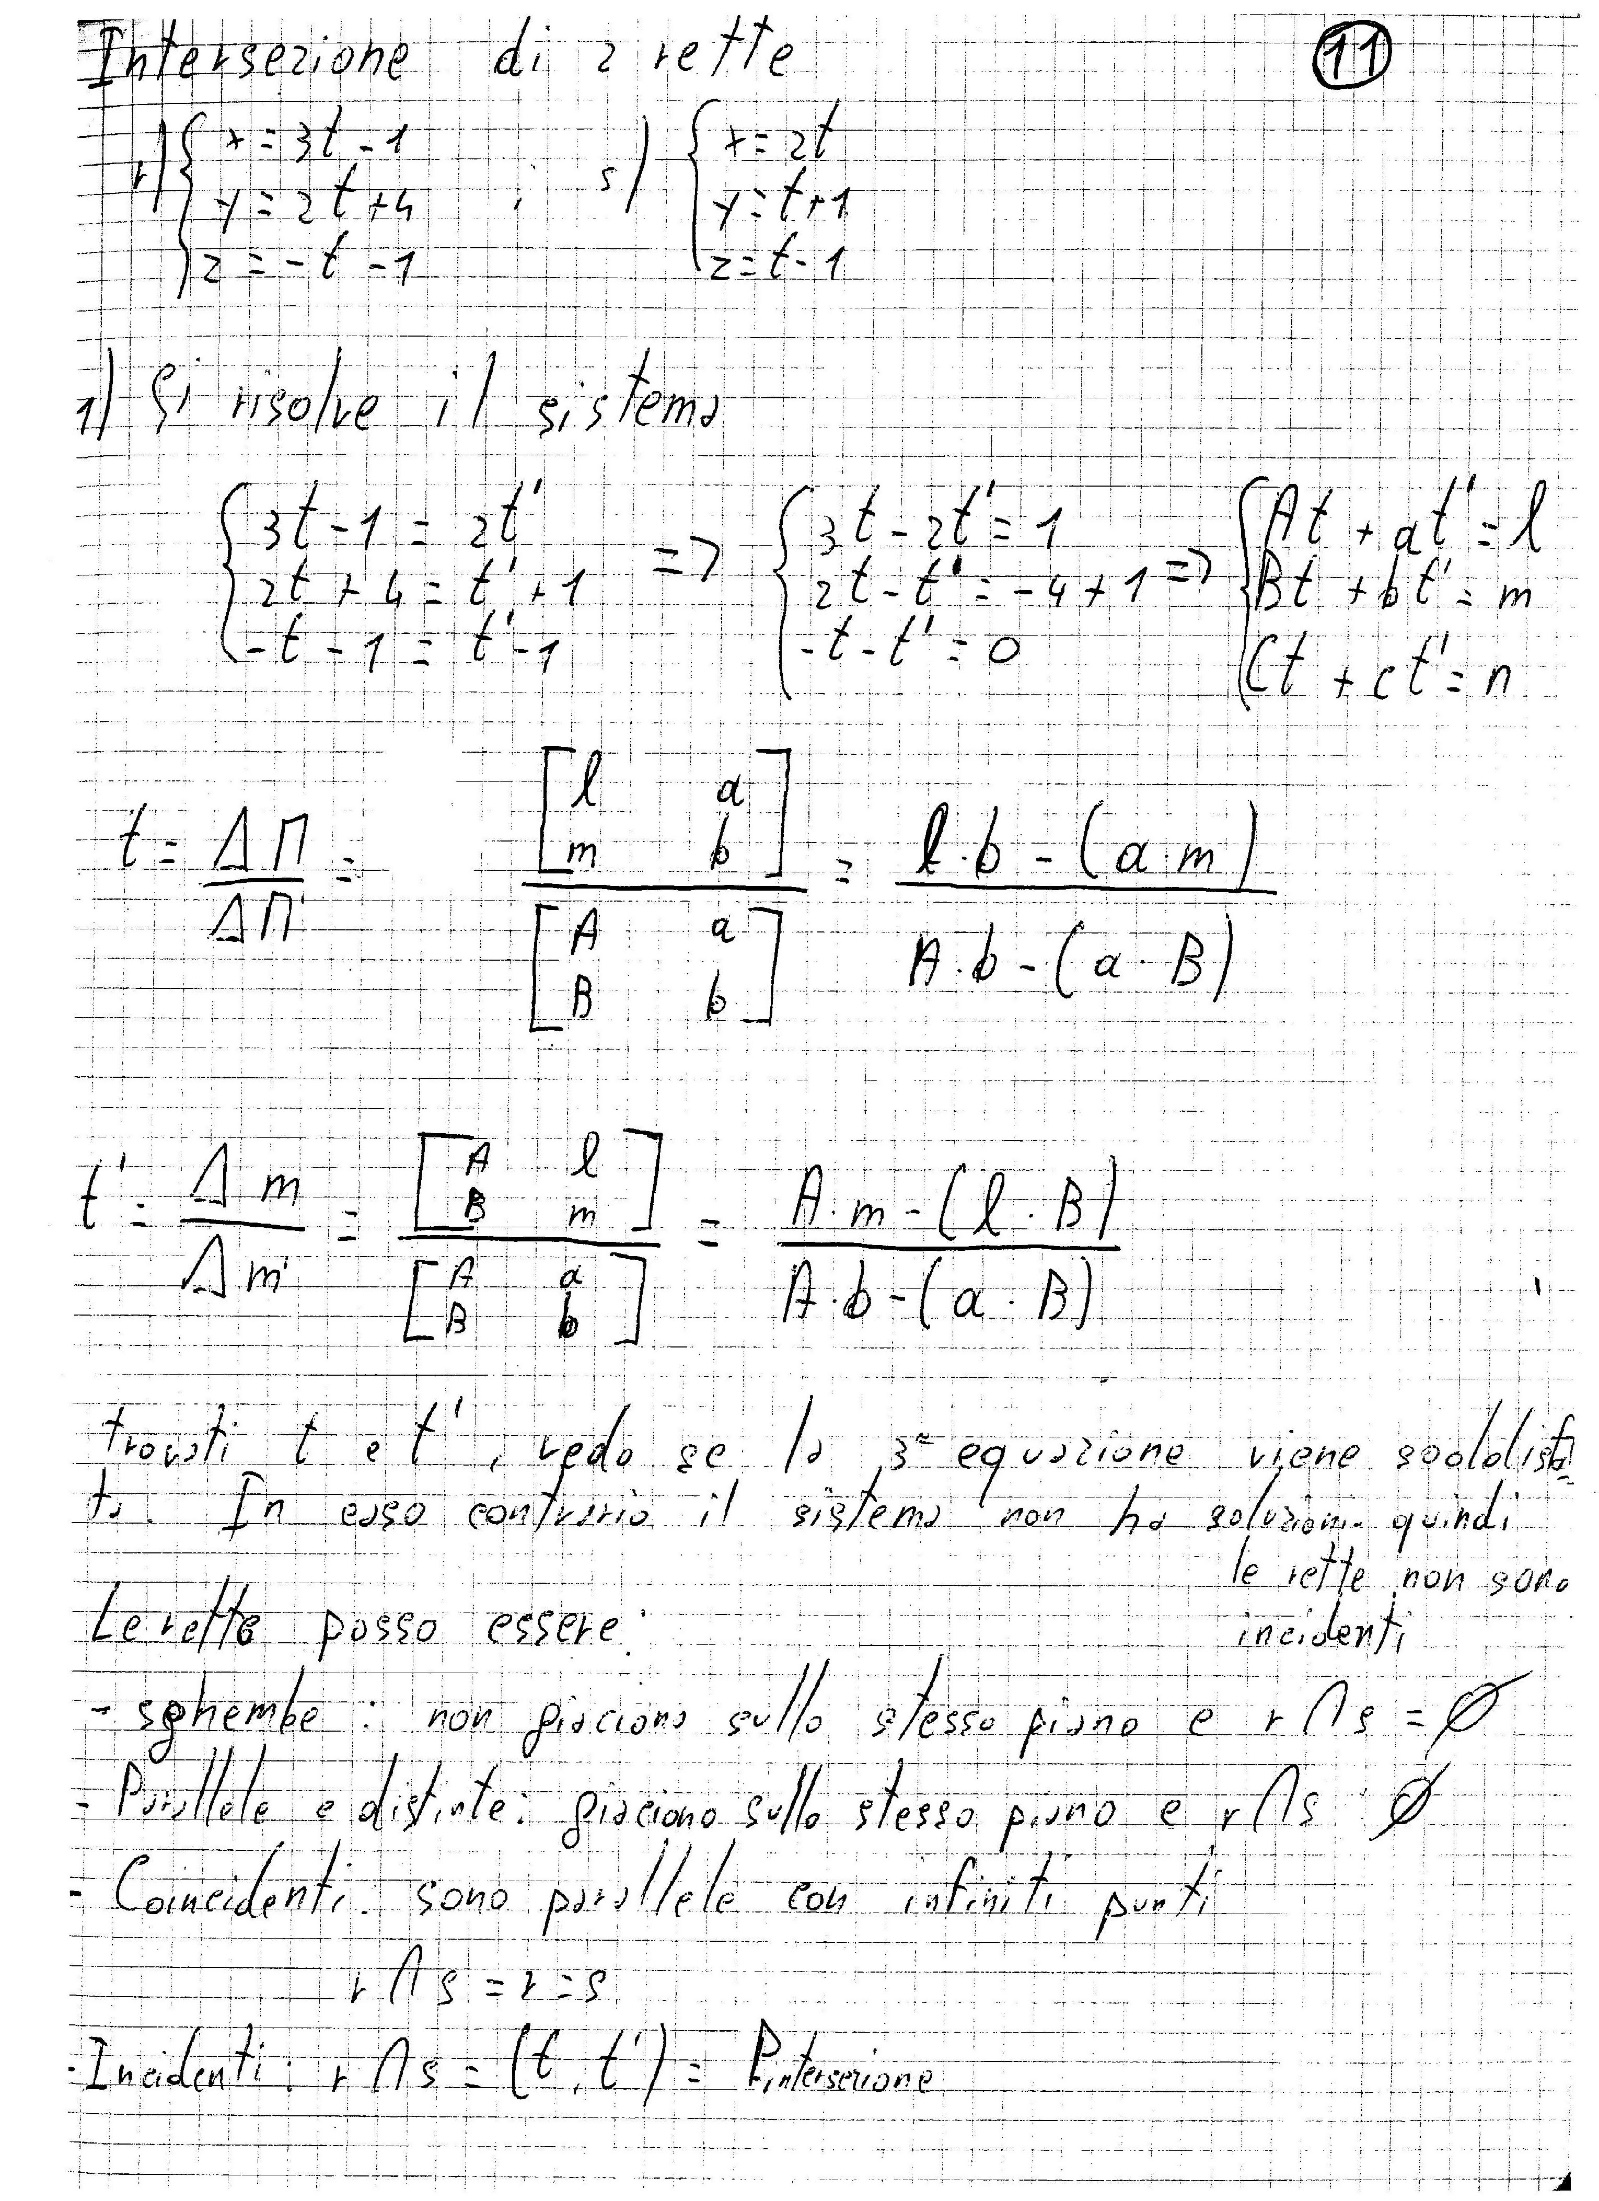 Intersezione di 2 rette
11
r) { x = 3t - 1 ; s) { x = 2t
y = 2t + 4 y = t + 1
z = -t - 1 z = t - 1
1) Si risolve il sistema
{ 3t - 1 = 2t' => { 3t - 2t' = 1 => { At + at' = l
2t + 4 = t' + 1 2t - t' = -4 + 1 Bt + bt' = m
-t - 1 = t' - 1 -t - t' = 0 Ct + ct' = n
[ l a ]
t = ΔΠ = [ m b ] = l·b - (a m)
ΔΠ' [ A a ] A·b - (a·B)
[ B b ]
[ A l ]
t' = Δm = [ B m ] = A·m - (l·B)
Δm' [ A a ] A·b - (a·B)
[ B b ]
trovati t e t', vedo se la 3ª equazione viene soddisfa
ta. In caso contrario il sistema non ha soluzioni quindi
le rette non sono
incidenti
Le rette posso essere:
- sghembe: non giaciono sullo stesso piano e r ∩ s = ∅
- Parallele e distinte: giaciono sullo stesso piano e r ∩ s ∅
- Coincidenti: sono parallele con infiniti punti
r ∩ s = r = s
- Incidenti: r ∩ s = (t, t') = Pintersezione